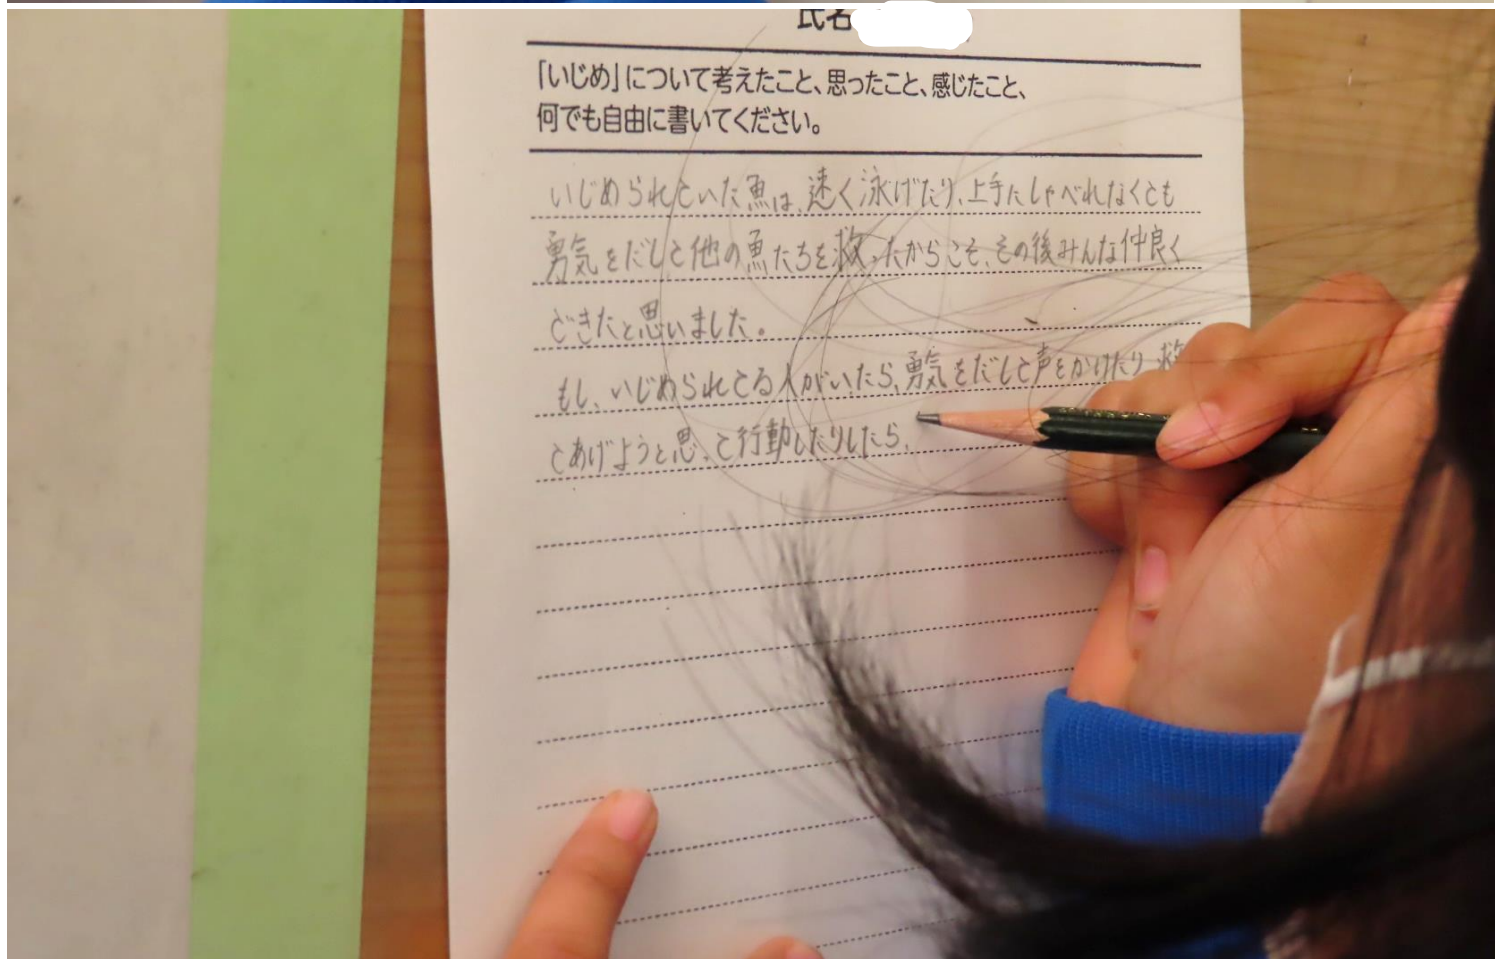 氏名
「いじめ」について考えたこと、思ったこと、感じたこと、
何でも自由に書いてください。
いじめられていた魚は、速く泳げたり、上手にしゃべれなくても
勇気をだして他の魚たちを救ったからこそ、その後みんな仲良く
できたと思いました。
もし、いじめられてる人がいたら、勇気をだして声をかけたり救
てあげようと思って行動したりしたら、